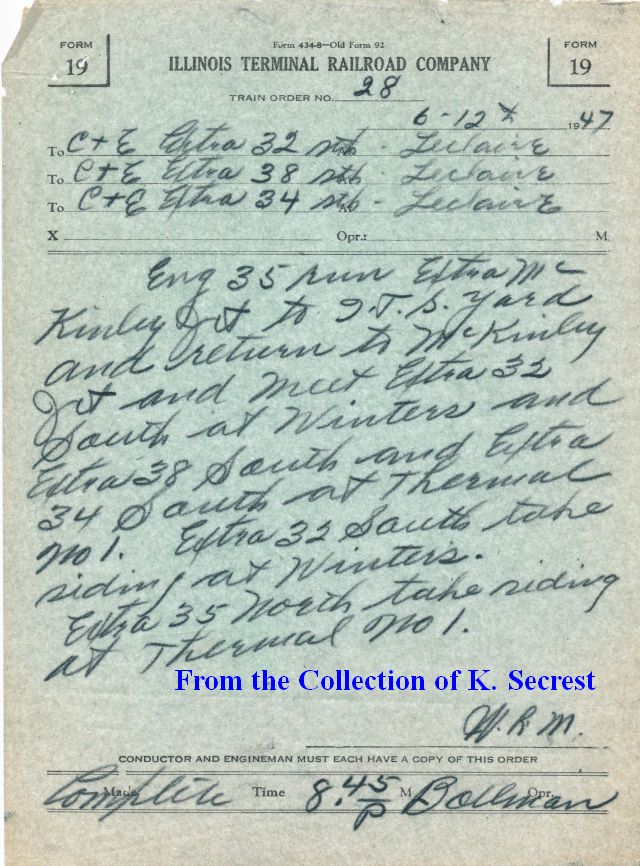 FORM 19
Form 434-8—Old Form 92
FORM 19
ILLINOIS TERMINAL RAILROAD COMPANY
TRAIN ORDER NO. 28
6-12th 1947
To C+E Extra 32 sth At - Leclaire
To C+E Extra 38 sth At - Leclaire
To C+E Extra 34 sth At - Leclaire
X Opr.: M.
Eng 35 run Extra Mc
Kinley Jct to I.T.S. Yard
and return to McKinley
Jct and meet Extra 32
South at Winters and
Extra 38 South and Extra
34 South at Thermal
No 1. Extra 32 South take
siding at Winters.
Extra 35 North take siding
at Thermal No 1.
From the Collection of K. Secrest
W.R.M.
CONDUCTOR AND ENGINEMAN MUST EACH HAVE A COPY OF THIS ORDER
Made Complete Time 8.45 P M Bollman Opr.